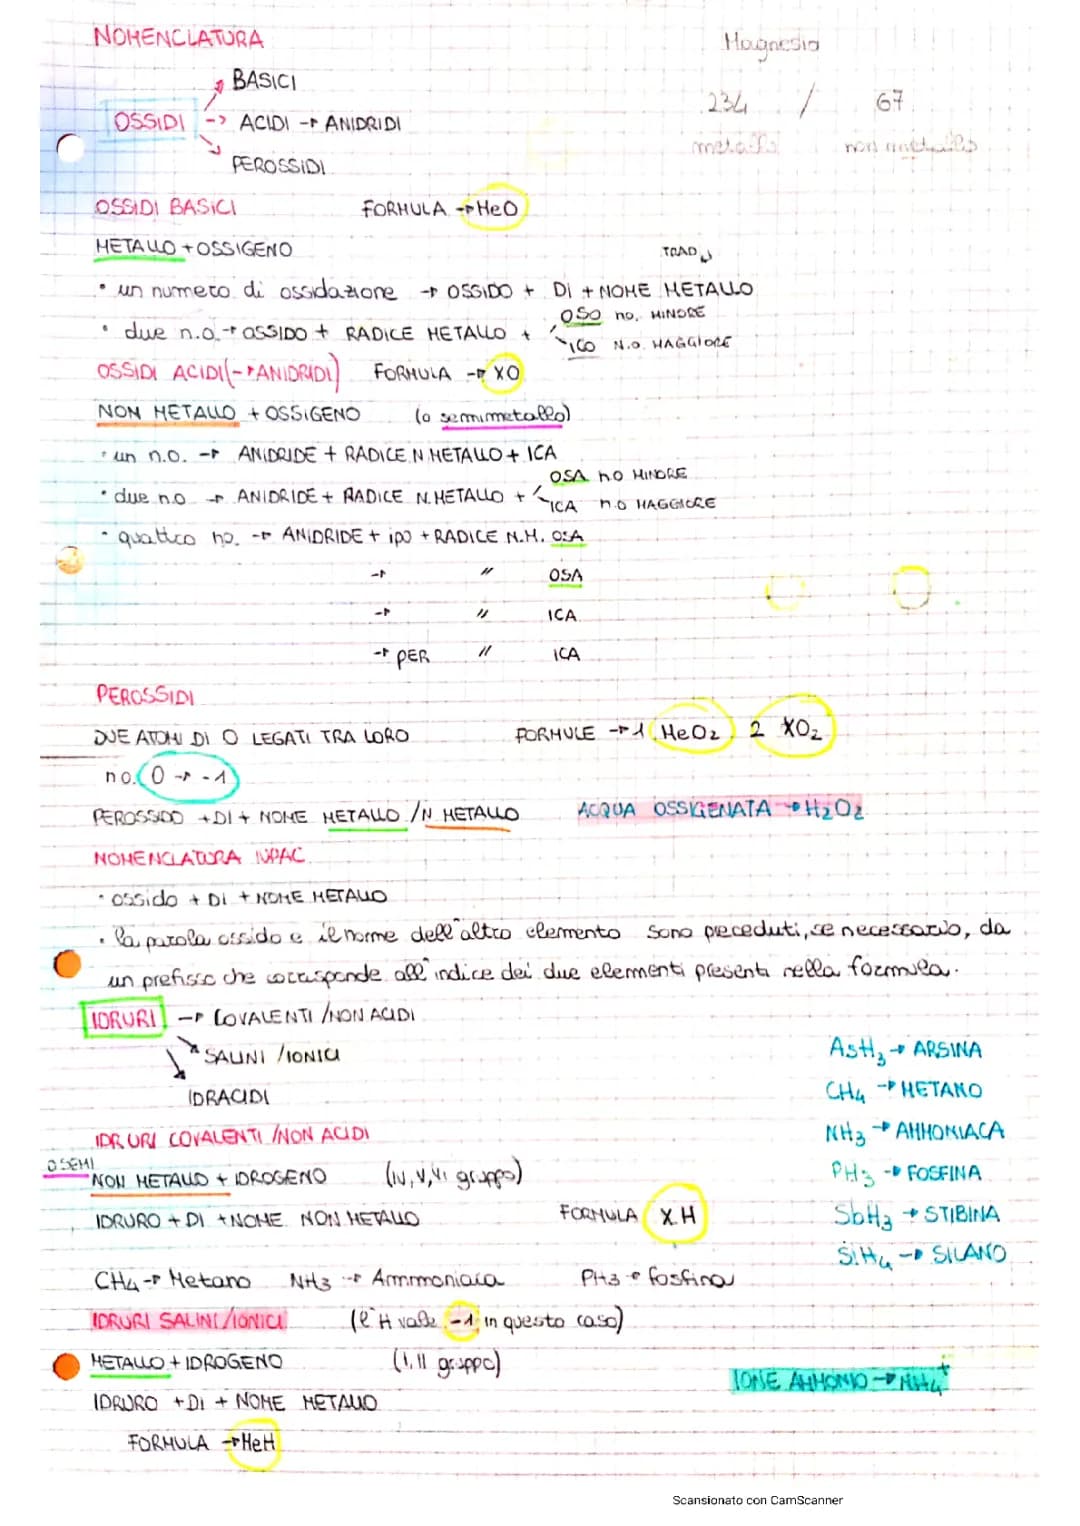 NOMENCLATURA
Magnesio
BASICI
OSSIDI -> ACIDI → ANIDRIDI
234 / 67
metallo non metallo
PEROSSIDI
OSSIDI BASICI FORMULA → MeO
METALLO + OSSIGENO
TRAD
• un numero di ossidazione → OSSIDO + DI + NOME METALLO
OSO no. MINORE
• due n.o. → OSSIDO + RADICE METALLO +
ICO N.O. MAGGIORE
OSSIDI ACIDI (→ ANIDRIDI) FORMULA → XO
NON METALLO + OSSIGENO (o semimetallo)
• un n.o. → ANIDRIDE + RADICE N.METALLO + ICA
OSA n.o MINORE
• due n.o → ANIDRIDE + RADICE N.METALLO +
ICA n.o MAGGIORE
• quattro no. → ANIDRIDE + ipo + RADICE N.M. OSA
→ " OSA
→ " ICA
→ PER " ICA
PEROSSIDI
DUE ATOMI DI O LEGATI TRA LORO FORMULE → 1 MeO₂ 2 XO₂
no. O → -1
PEROSSIDO + DI + NOME METALLO / N METALLO ACQUA OSSIGENATA → H₂O₂
NOMENCLATURA IUPAC
• ossido + DI + NOME METALLO
• la parola ossido e il nome dell'altro elemento sono preceduti, se necessario, da
un prefisso che corrisponde all'indice dei due elementi presenti nella formula.
IDRURI → COVALENTI / NON ACIDI
SALINI / IONICI
IDRACIDI
AsH₃ → ARSINA
CH₄ → METANO
NH₃ → AMMONIACA
PH₃ → FOSFINA
SbH₃ → STIBINA
SiH₄ → SILANO
IDRURI COVALENTI / NON ACIDI
O SEMI
NON METALLO + IDROGENO (IV, V, VI gruppo)
IDRURO + DI + NOME NON METALLO FORMULA XH
CH₄ → Metano NH₃ → Ammoniaca PH₃ → fosfina
IDRURI SALINI/IONICI (l'H vale -1 in questo caso)
METALLO + IDROGENO (I, II gruppo)
IONE AMMONIO → NH₄⁺
IDRURO + DI + NOME METALLO
FORMULA → MeH
Scansionato con CamScanner